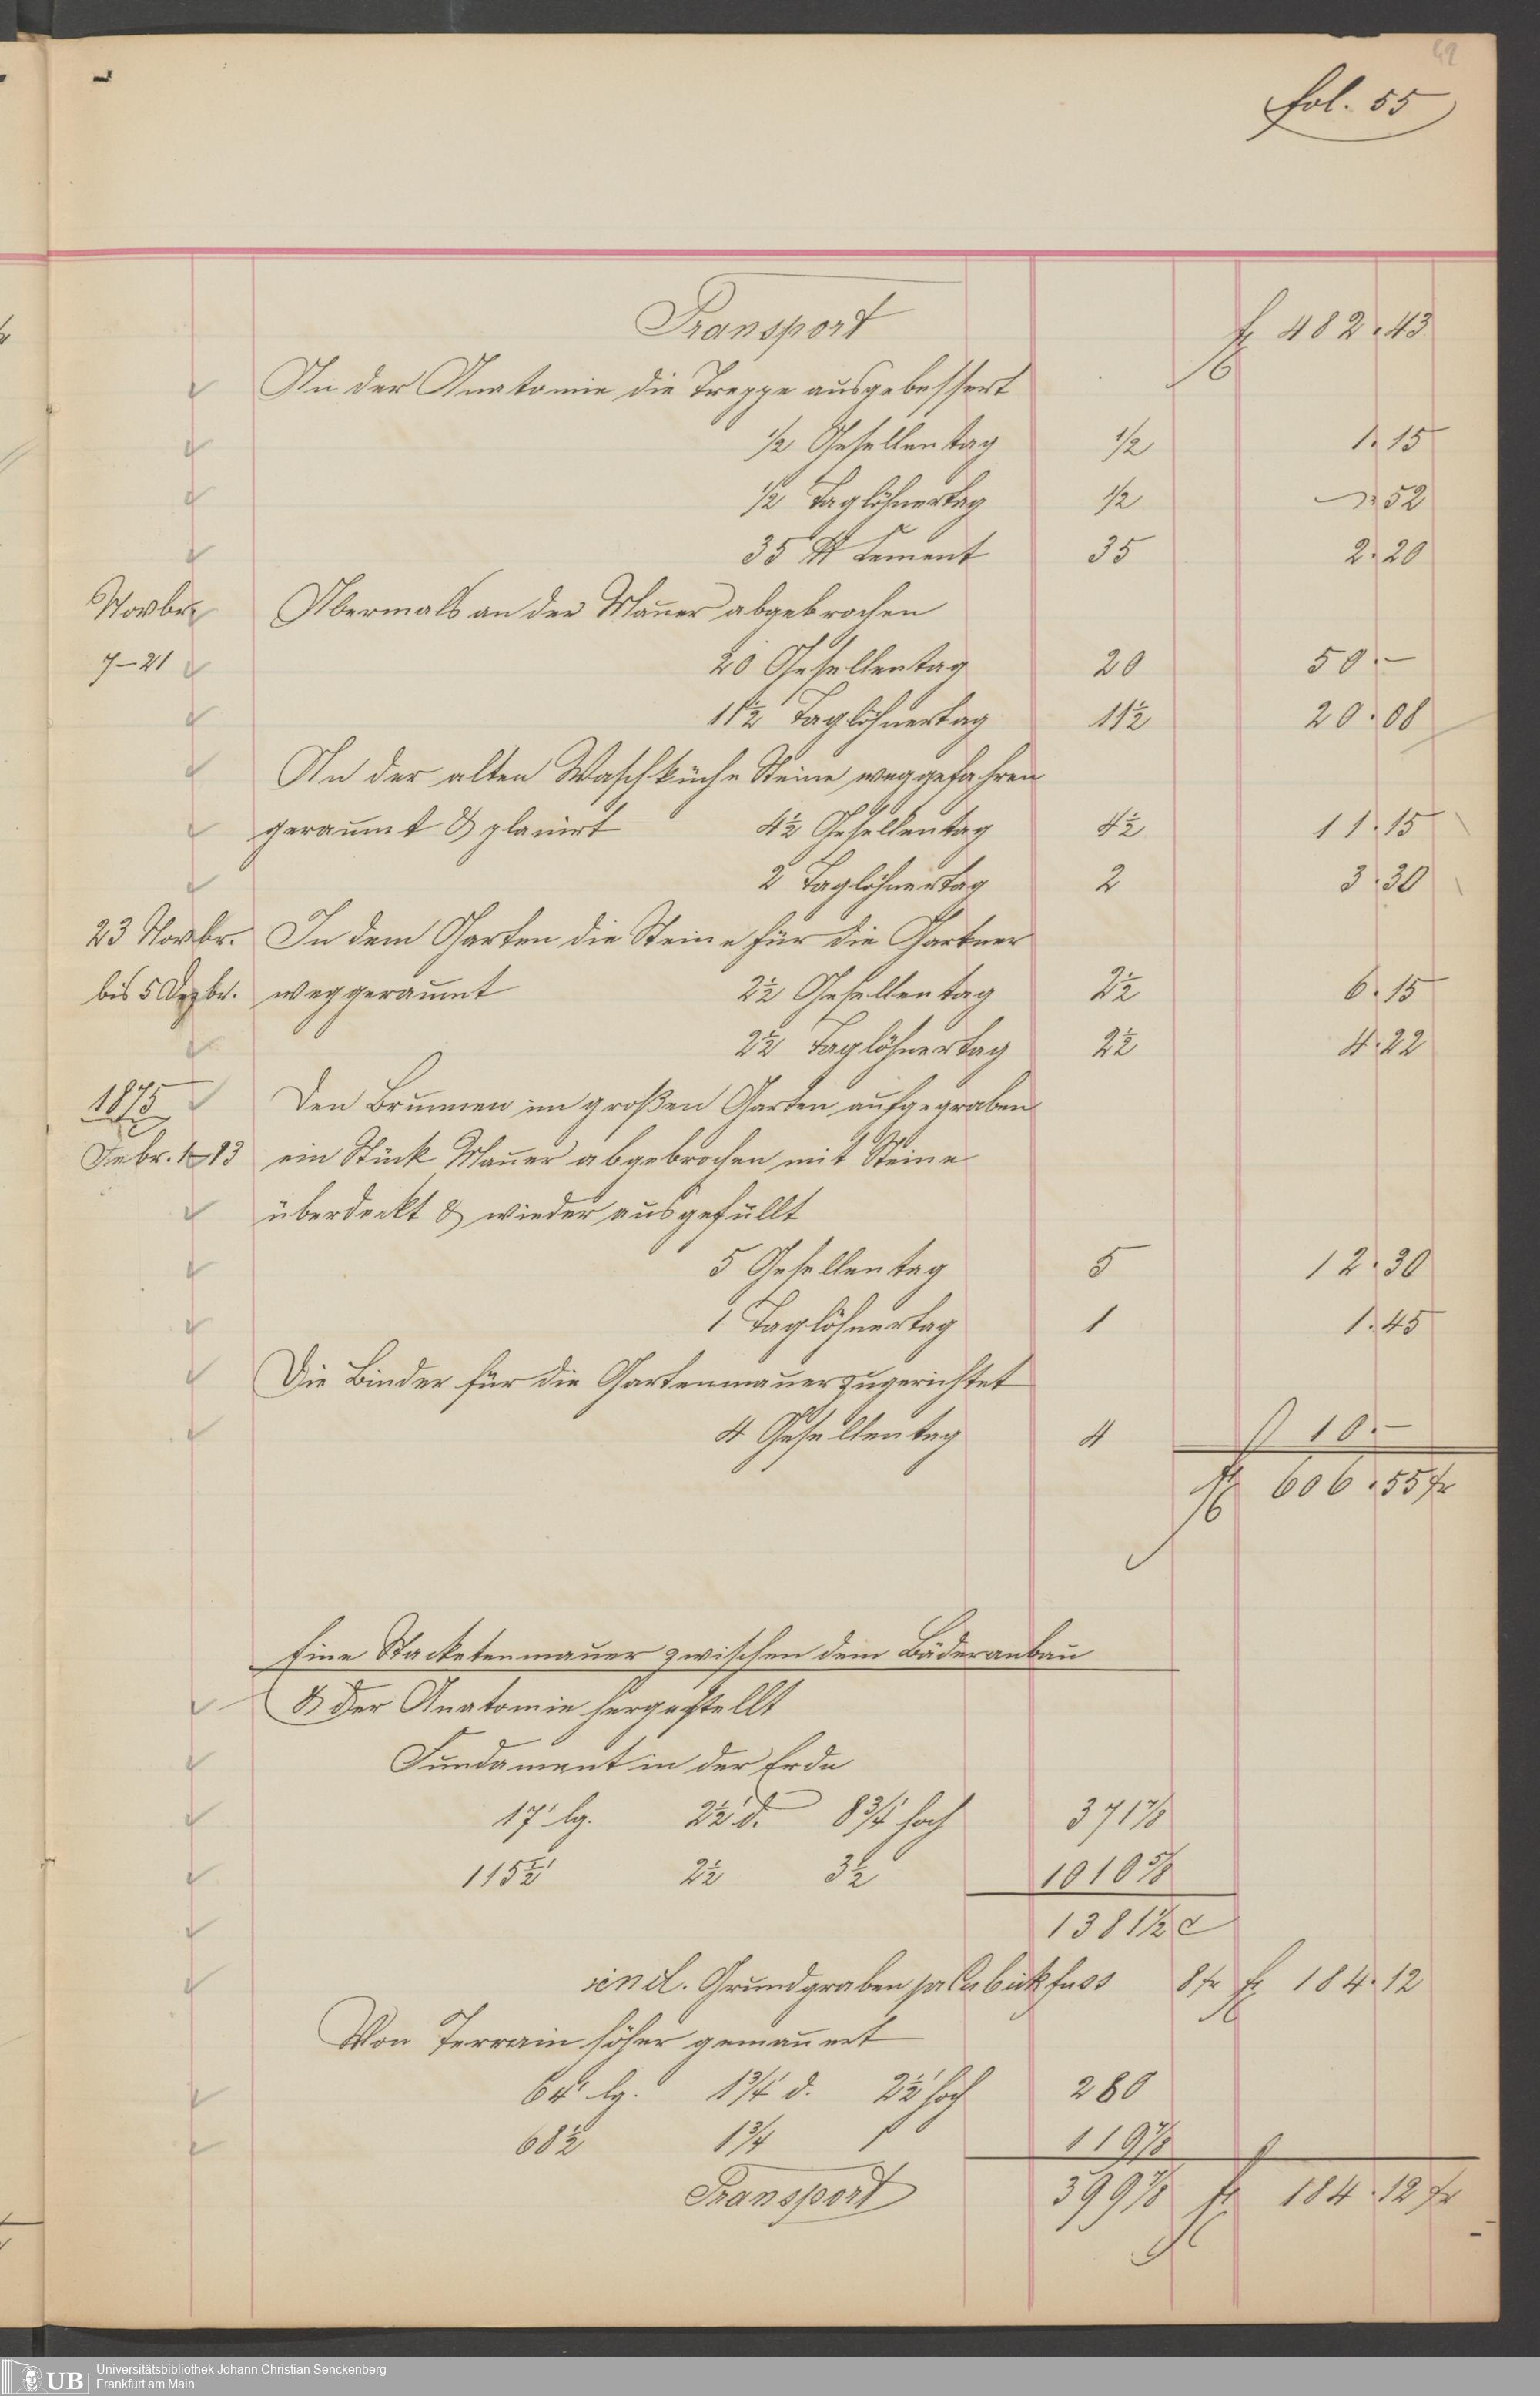 49
fol. 55
Transport fl 482.43
In der Anatomie die Treppe ausgebessert
1/2 Gesellentag 1/2 1.15
1/2 Taglöhnertag 1/2 — 52
35 ℔ Cement 35 2.20
Novbr. Abermals an der Mauer abgebrochen
7–21 20 Gesellentag 20 50.–
11½ Taglöhnertag 11½ 20.08
In der alten Waschküche Steine weggefahren
geraumt & planirt 4½ Gesellentag 4½ 11.15
2 Taglöhnertag 2 3.30
23 Novbr. In dem Garten die Steine für die Gartner
bis 5 Dezbr. weggeraumt 2½ Gesellentag 2½ 6.15
2½ Taglöhnertag 2½ 4.22
1875 Den Brunnen im großen Garten aufgegraben
Febr. 1–13 ein Stück Mauer abgebrochen mit Steine
überdeckt & wieder ausgefüllt
5 Gesellentag 5 12.30
1 Taglöhnertag 1 1.45
Die Binder für die Gartenmauer zugerichtet
4 Gesellentag 4 10.–
fl 606.55 kr
Eine Stacketenmauer zwischen dem Bäderanbau
& der Anatomie hergestellt
Fundament in der Erde
17' lg. 2½' d. 8¾' hoch 371⅞
115½' 2½ 3½ 1010⅝
1381½ c
incl. Grundgraben pa Cubickfuss 8 kr fl 184.12
Von Terrain höher gemauert
64' lg. 1¾' d. 2½' hoch 280
68½ 1¾ 1 119⅞
Transport 399⅞ fl 184.12 kr
UB Universitätsbibliothek Johann Christian Senckenberg
Frankfurt am Main